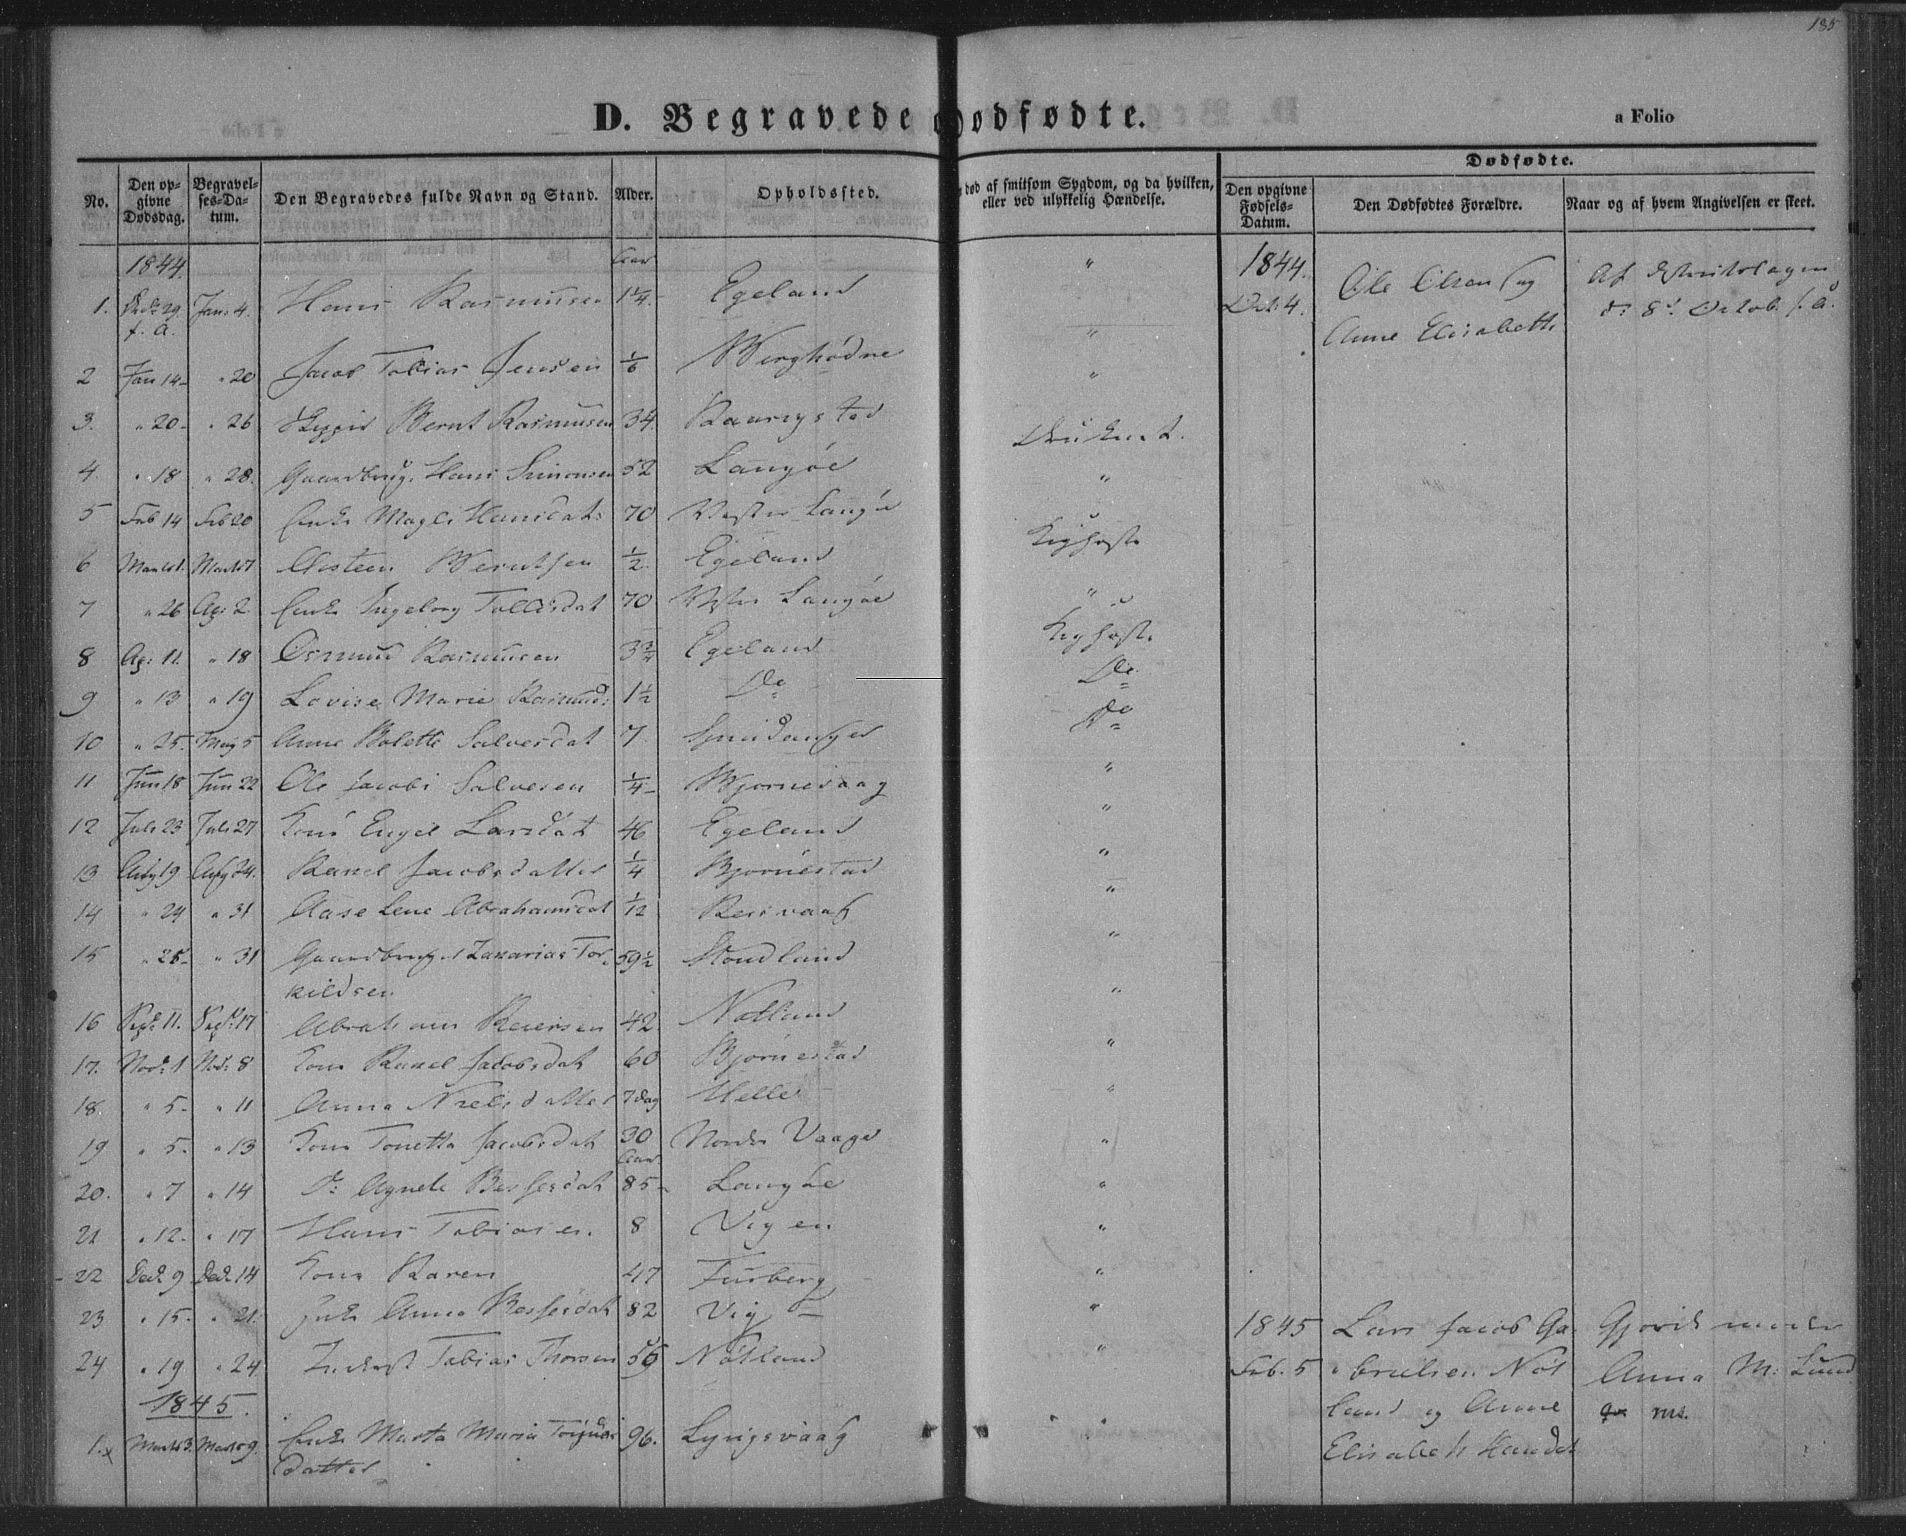 185
D. Begravede og Dødfødte.
a Folio
Dødfødte.
No. Den opgivne Dødsdag. Begravelses-Datum. Den Begravedes fulde Navn og Stand. Alder. Opholdssted. død af smitsom Sygdom, og da hvilken, eller ved ulykkelig Hændelse. Den opgivne Fødsels-Datum. Den Dødfødtes Forældre. Naar og af hvem Angivelsen er skeet.
1844. Aar " 1844.
1. Decbr 29 f. A. Jan: 4. Hans Rasmusen 1 1/4. Egeland " Oct: 4. Ole Olsen og
Anne Elisabeth
d: 8d Octob. f. A.
2 Jan 14 " 20 Jacob Tobias Jensen 1/6 "
3. " 20 " 26 Skipper Bernt Rasmusen 34. Druknet.
4. " 18 " 28. Gaardbrug. Hans Simonsen 52 Langøe "
5 Feb 14 Feb 20 Enke Magli Hansdat: 70 Vester Langøe
6 Marts 1. Marts 7 Aasteen Berntsen 1/2. Egeland Kighoste
7 " 26 Ap: 2 Enke Ingeborg Tollesdat 70 Vester Langøe "
8 Ap: 11. " 18 Osmund Rasmusen 3 3/4 Egeland Kighoste
9 " 13 " 19 Lovise Marie Rasmusd: 1 1/2 Do Do
10 " 25. Maj 5 Anne Bolette Salvesdat 7. Do
11 Jun 18 Jun 22 Ole Jacobi Salvesen 1/4 Bjornevaag "
12 Juli 23 Juli 27 Kone Engel Larsdat 46 Egeland "
13 Aug 19 Aug 24. Karel Jacobsdatter 1/4 Bjørnestad "
14 " 29 " 31 Aase Lene Abrahamsdat 1/12 Reisvaag "
15 " 25 " 31 Gaardbrug. Zakarias Tor-
kildsen 59 1/2 Stoudland "
16 Sept: 11. Sept: 17 Abraham Reiersen 42. Nøtland "
17. Nov: 1 Nov: 8 Kone Karel Jacobsdat 60 Bjørnestad "
18. " 5. " 11 Anna Nielsdatter 7 dag Helle "
19 " 5. " 13 Kone Tonetta Jacobsdat 30 Aar Nordre Vaage "
20. " 7 " 14 Do Agnete Bessesdat 85 Langøe "
21 " 12. " 17 Hans Tobiasen. 8 Vigen "
22 Dec. 9 Dec. 14 Kone Karen 47 Furberg "
23 " 15. " 21. Enke Anna Bessesdat 82 Vig "
24 " 19 " 24 Inderst Tobias Thorsen 56 Nøtland "
1845 Lars Jacob Ga-
Feb. 5 brielsen Nøt
land og Anne
Elisabeth Hansdat
Gjordemoder
Anna M: Lund
1845.
1. Marts 3. Marts 9. Enke Marta Maria
datter 96. Lyngsvaag "